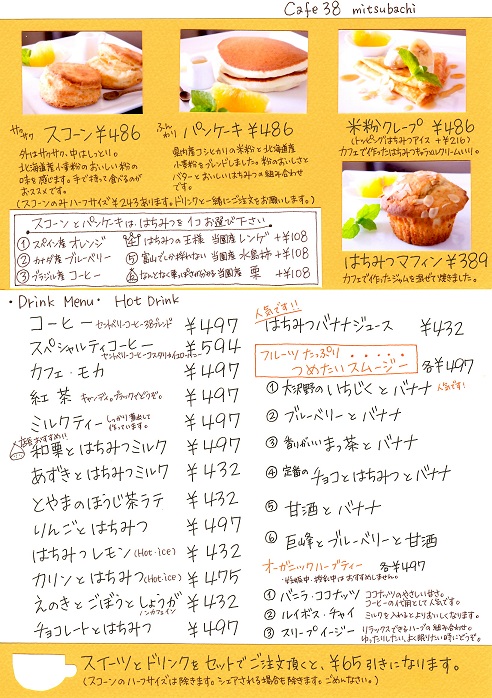 Cafe 38 mitsubachi
サクサク スコーン ¥486
外はサクサク、中はしっとり。
北海道産小麦粉のおいしい粉の
味を感じます。手で持って食べるのが
おススメです。
(スコーンのみハーフサイズ¥243あります。ドリンクと一緒にご注文をお願いします。)
ふんわり パンケーキ ¥486
小麦粉をブレンドしました。粉のおいしさと
バターとおいしいはちみつの組み合わせ
です。
米粉クレープ ¥486
(トッピングはちみつアイス +¥216)
カフェで作ったはちみつキャラメルクリーム入り。
はちみつマフィン ¥389
カフェで作ったジャムを混ぜて焼きました。
スコーンとパンケーキは、はちみつを1コお選び下さい
①スペイン産 オレンジ
②カナダ産 ブルーベリー
③ブラジル産 コーヒー
④はちみつの王様 当国産 レンゲ +¥108
⑤富山でしか採れない 当国産 水島柿 +¥108
⑥なんとなく栗っぽさが分かる 当国産 栗 +¥108
・Drink Menu・ Hot Drink
コーヒー セントベリーコーヒー38ブレンド ¥497
スペシャルティコーヒー ¥594
カフェ・モカ ¥497
紅茶 キャンディ。ブラックでどうぞ。 ¥497
ミルクティー しっかり煮出して作っています。 ¥497
店長おすすめ!! 和栗とはちみつミルク ¥497
あずきとはちみつミルク ¥432
とやまのほうじ茶ラテ ¥432
りんごとはちみつ ¥497
はちみつレモン (Hot・ice) ¥432
カリンとはちみつ (Hot・ice) ¥475
えのきとごぼうとしょうが ノンカフェイン ¥432
チョコレートとはちみつ ¥497
人気です!!
はちみつバナナジュース ¥432
フルーツたっぷり・・・・・
つめたいスムージー 各¥497
①大沢野のいちじくとバナナ 人気です!
②ブルーベリーとバナナ
③香りがいいまっ茶とバナナ
④定番のチョコとはちみつとバナナ
⑤甘酒とバナナ
⑥巨峰とブルーベリーと甘酒
オーガニックハーブティー 各¥497
・妊娠中・授乳中はおすすめしません。
①バニラ・ココナッツ ココナッツのやさしい甘さ。コーヒーの代用として人気です。
②ルイボス・チャイ ミルクを入れるとよりおいしくなります。
③スリープイージー リラックスできるハーブの組み合わせ。ゆったりしたい、よく眠りたい時にどうぞ。
スイーツとドリンクをセットでご注文頂くと、¥65引きになります。
(スコーンのハーフサイズは除きます。シェアされる場合を除きます。ごめんなさい。)